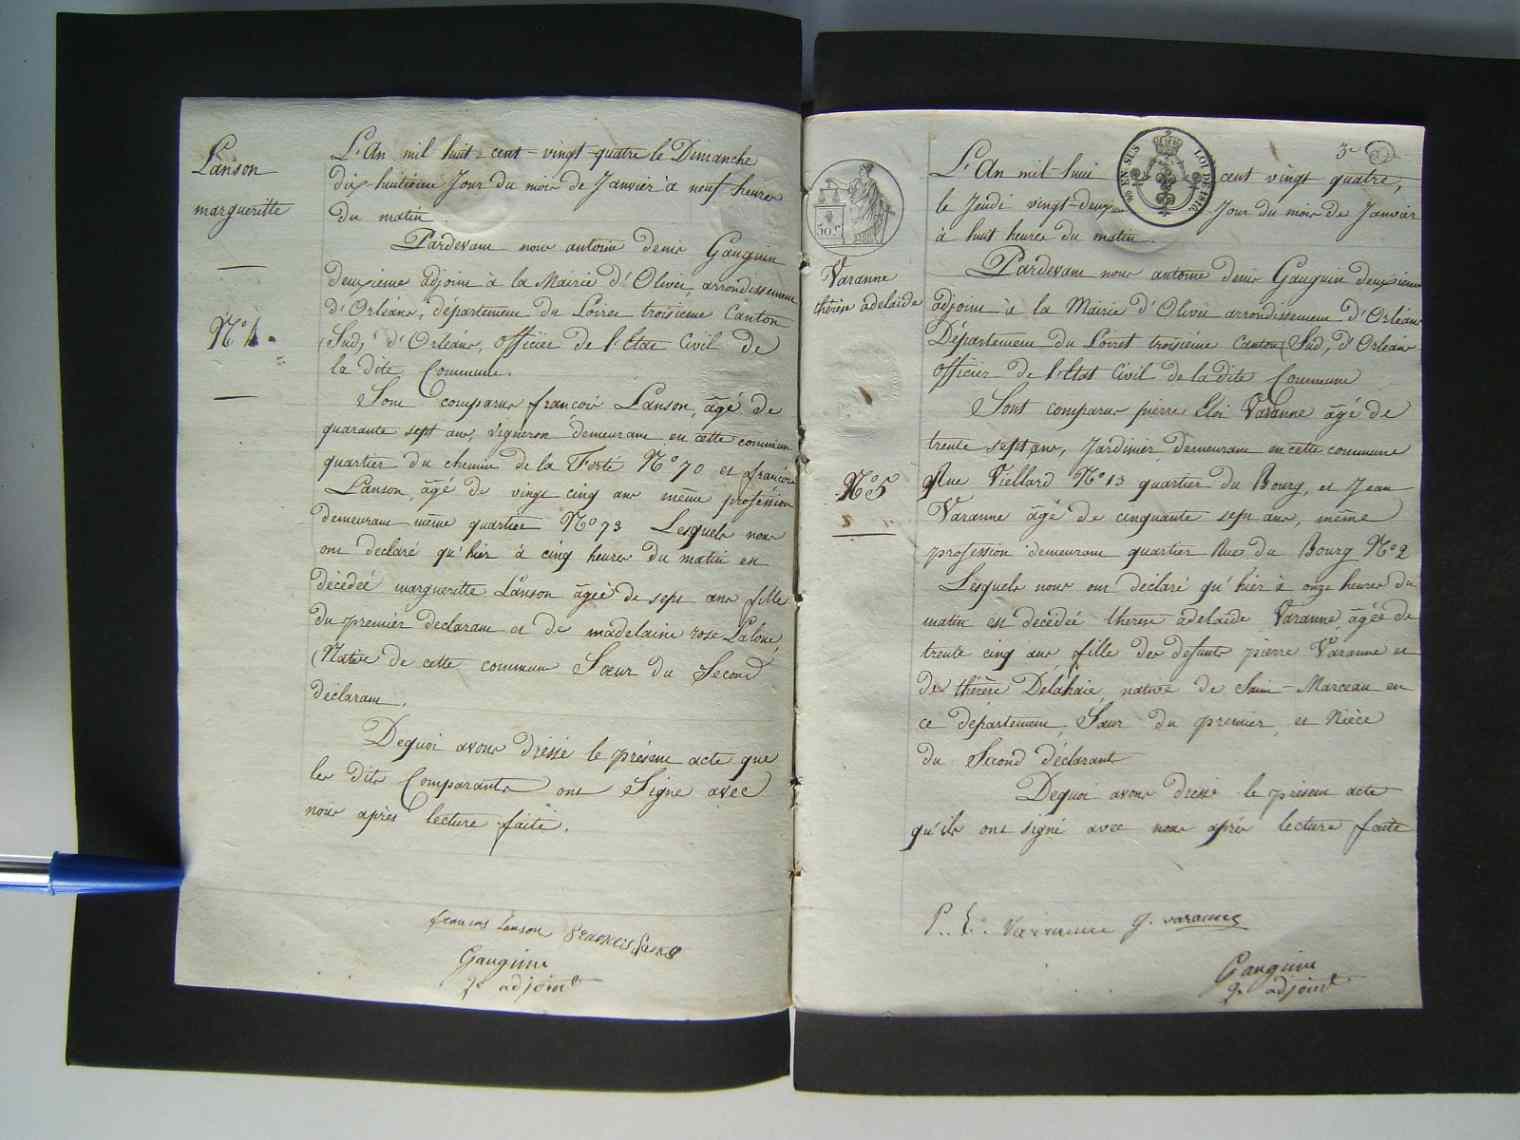 Lanson
margueritte
N° 4.
L'An mil huit cent vingt quatre le Dimanche
dix huitieme Jour du mois de Janvier à neuf heures
du matin
Pardevant nous antoine denis Gauguin
deuxieme adjoint à la Mairie d'Olivet, arrondissement
d'Orléans, département du Loiret troisieme Canton
(Sud) d'Orléans, officier de l'Etat Civil de
la dite Commune.
Sont comparus françois Lanson, âgé de
quarante sept ans, vigneron demeurant en cette commune
quartier du chemin de la Ferté N° 70 et françois
Lanson, âgé de vingt cinq ans même profession
demeurant même quartier N° 73 Lesquels nous
ont declaré qu'hier à cinq heures du matin est
décédée margueritte Lanson âgée de sept ans fille
du premier declarant et de madelaine rose
Native de cette commune Sœur du Second
déclarant.
Dequoi avons dressé le présent acte que
les dits Comparants ont Signé avec
nous après lecture faite.
francois Lanson
Gauguin
2e adjoint
3e
50c.
EN SUS
LOI DE 1816
Varanne
thérèse adelaide
N° 5
L'An mil huit cent vingt quatre,
le Jeudi vingt-deux Jour du mois de Janvier
à huit heures du matin.
Pardevant nous antoine denis Gauguin deuxieme
adjoint à la Mairie d'Olivet arrondissement d'Orléans
Département du Loiret troisième Canton (Sud) d'Orléans
officier de l'Etat Civil de la dite Commune
Sont comparus pierre Eloi Varanne âgé de
trente sept ans, Jardinier demeurant en cette commune
Rue Viellard N° 13 quartier du Bourg, et Jean
Varanne âgé de cinquante sept ans, même
profession demeurant quartier Rue du Bourg N° 2
Lesquels nous ont déclaré qu'hier à onze heures du
matin est decédée therese adelaide Varanne, âgée de
trente cinq ans fille des defunts pierre Varanne et
de thérèse Delahaie, native de Saint-Marceau en
ce département, Sœur du premier, et Nièce
du Second déclarant
Dequoi avons dressé le présent acte
qu'ils ont signé avec nous après lecture faite
P. E. Varanne J. varanne
Gauguin
2e adjoint